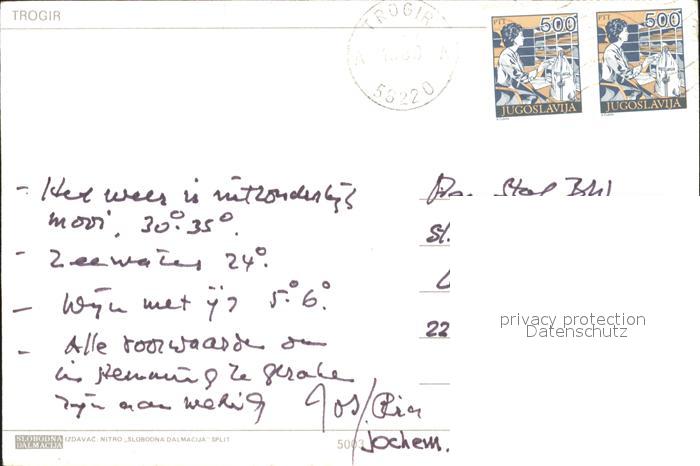 TROGIR
TROGIR
A A
58220
PTT 500
JUGOSLAVIJA
PTT 500
JUGOSLAVIJA
- Het weer is uitzonderlijk
mooi, 30° 35°.
- Zeewater 24°.
- Wijn met ijs 5° 6°.
- Alle voorwaarden om
in stemming te geraken
zijn aanwezig
Jos/Ria
Jochem.
22
privacy protection
Datenschutz
SLOBODNA DALMACIJA IZDAVAČ: NIŠRO „SLOBODNA DALMACIJA" SPLIT